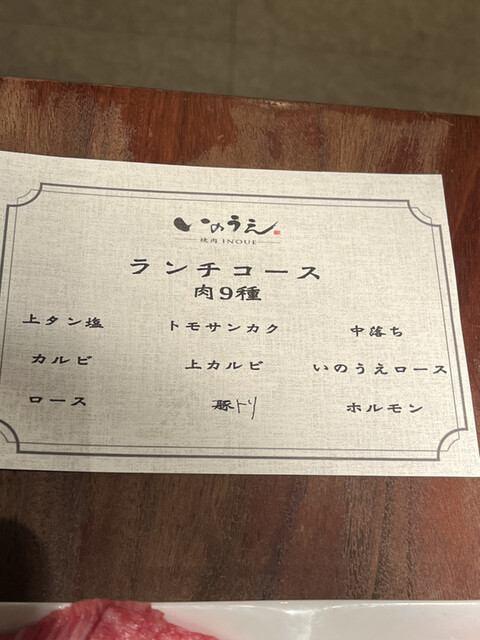 いのうえ
焼肉 INOUE
ランチコース
肉9種
上タン塩 トモサンカク 中落ち
カルビ 上カルビ いのうえロース
ロース 豚トリ ホルモン